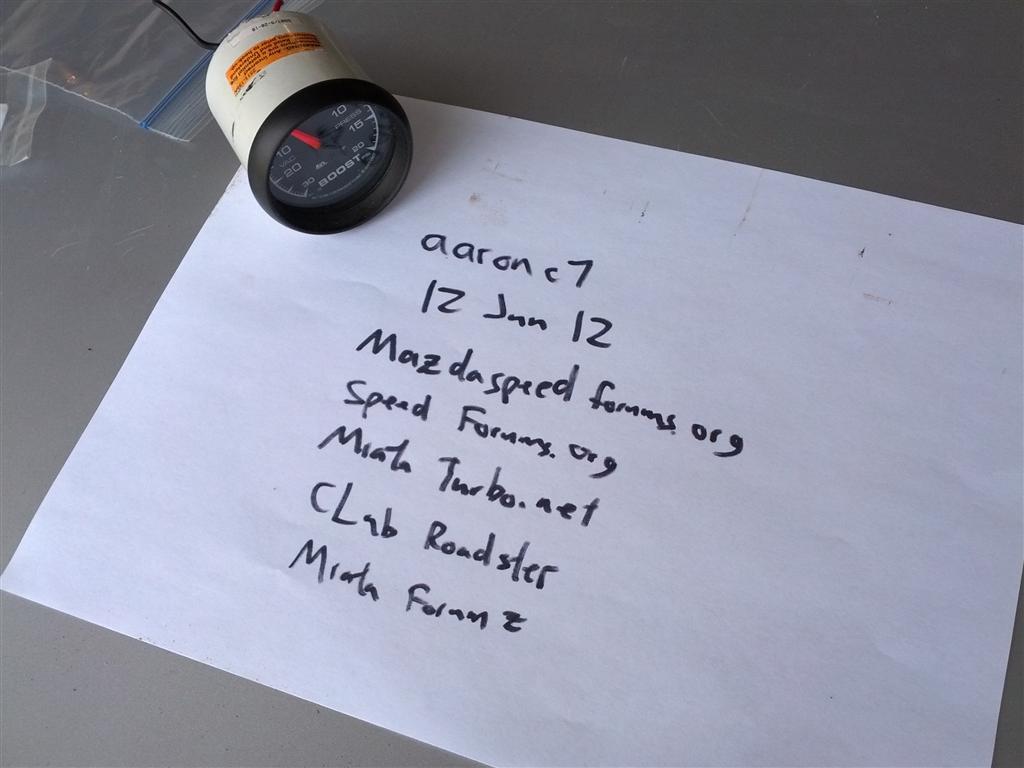 10
PRESS
15
20
10
VAC
20
30
BOOST
aaronc7
12 Jun 12
Mazdaspeed forums.org
Speed Forums.org
Miata Turbo.net
CLub Roadster
Miata Forumz